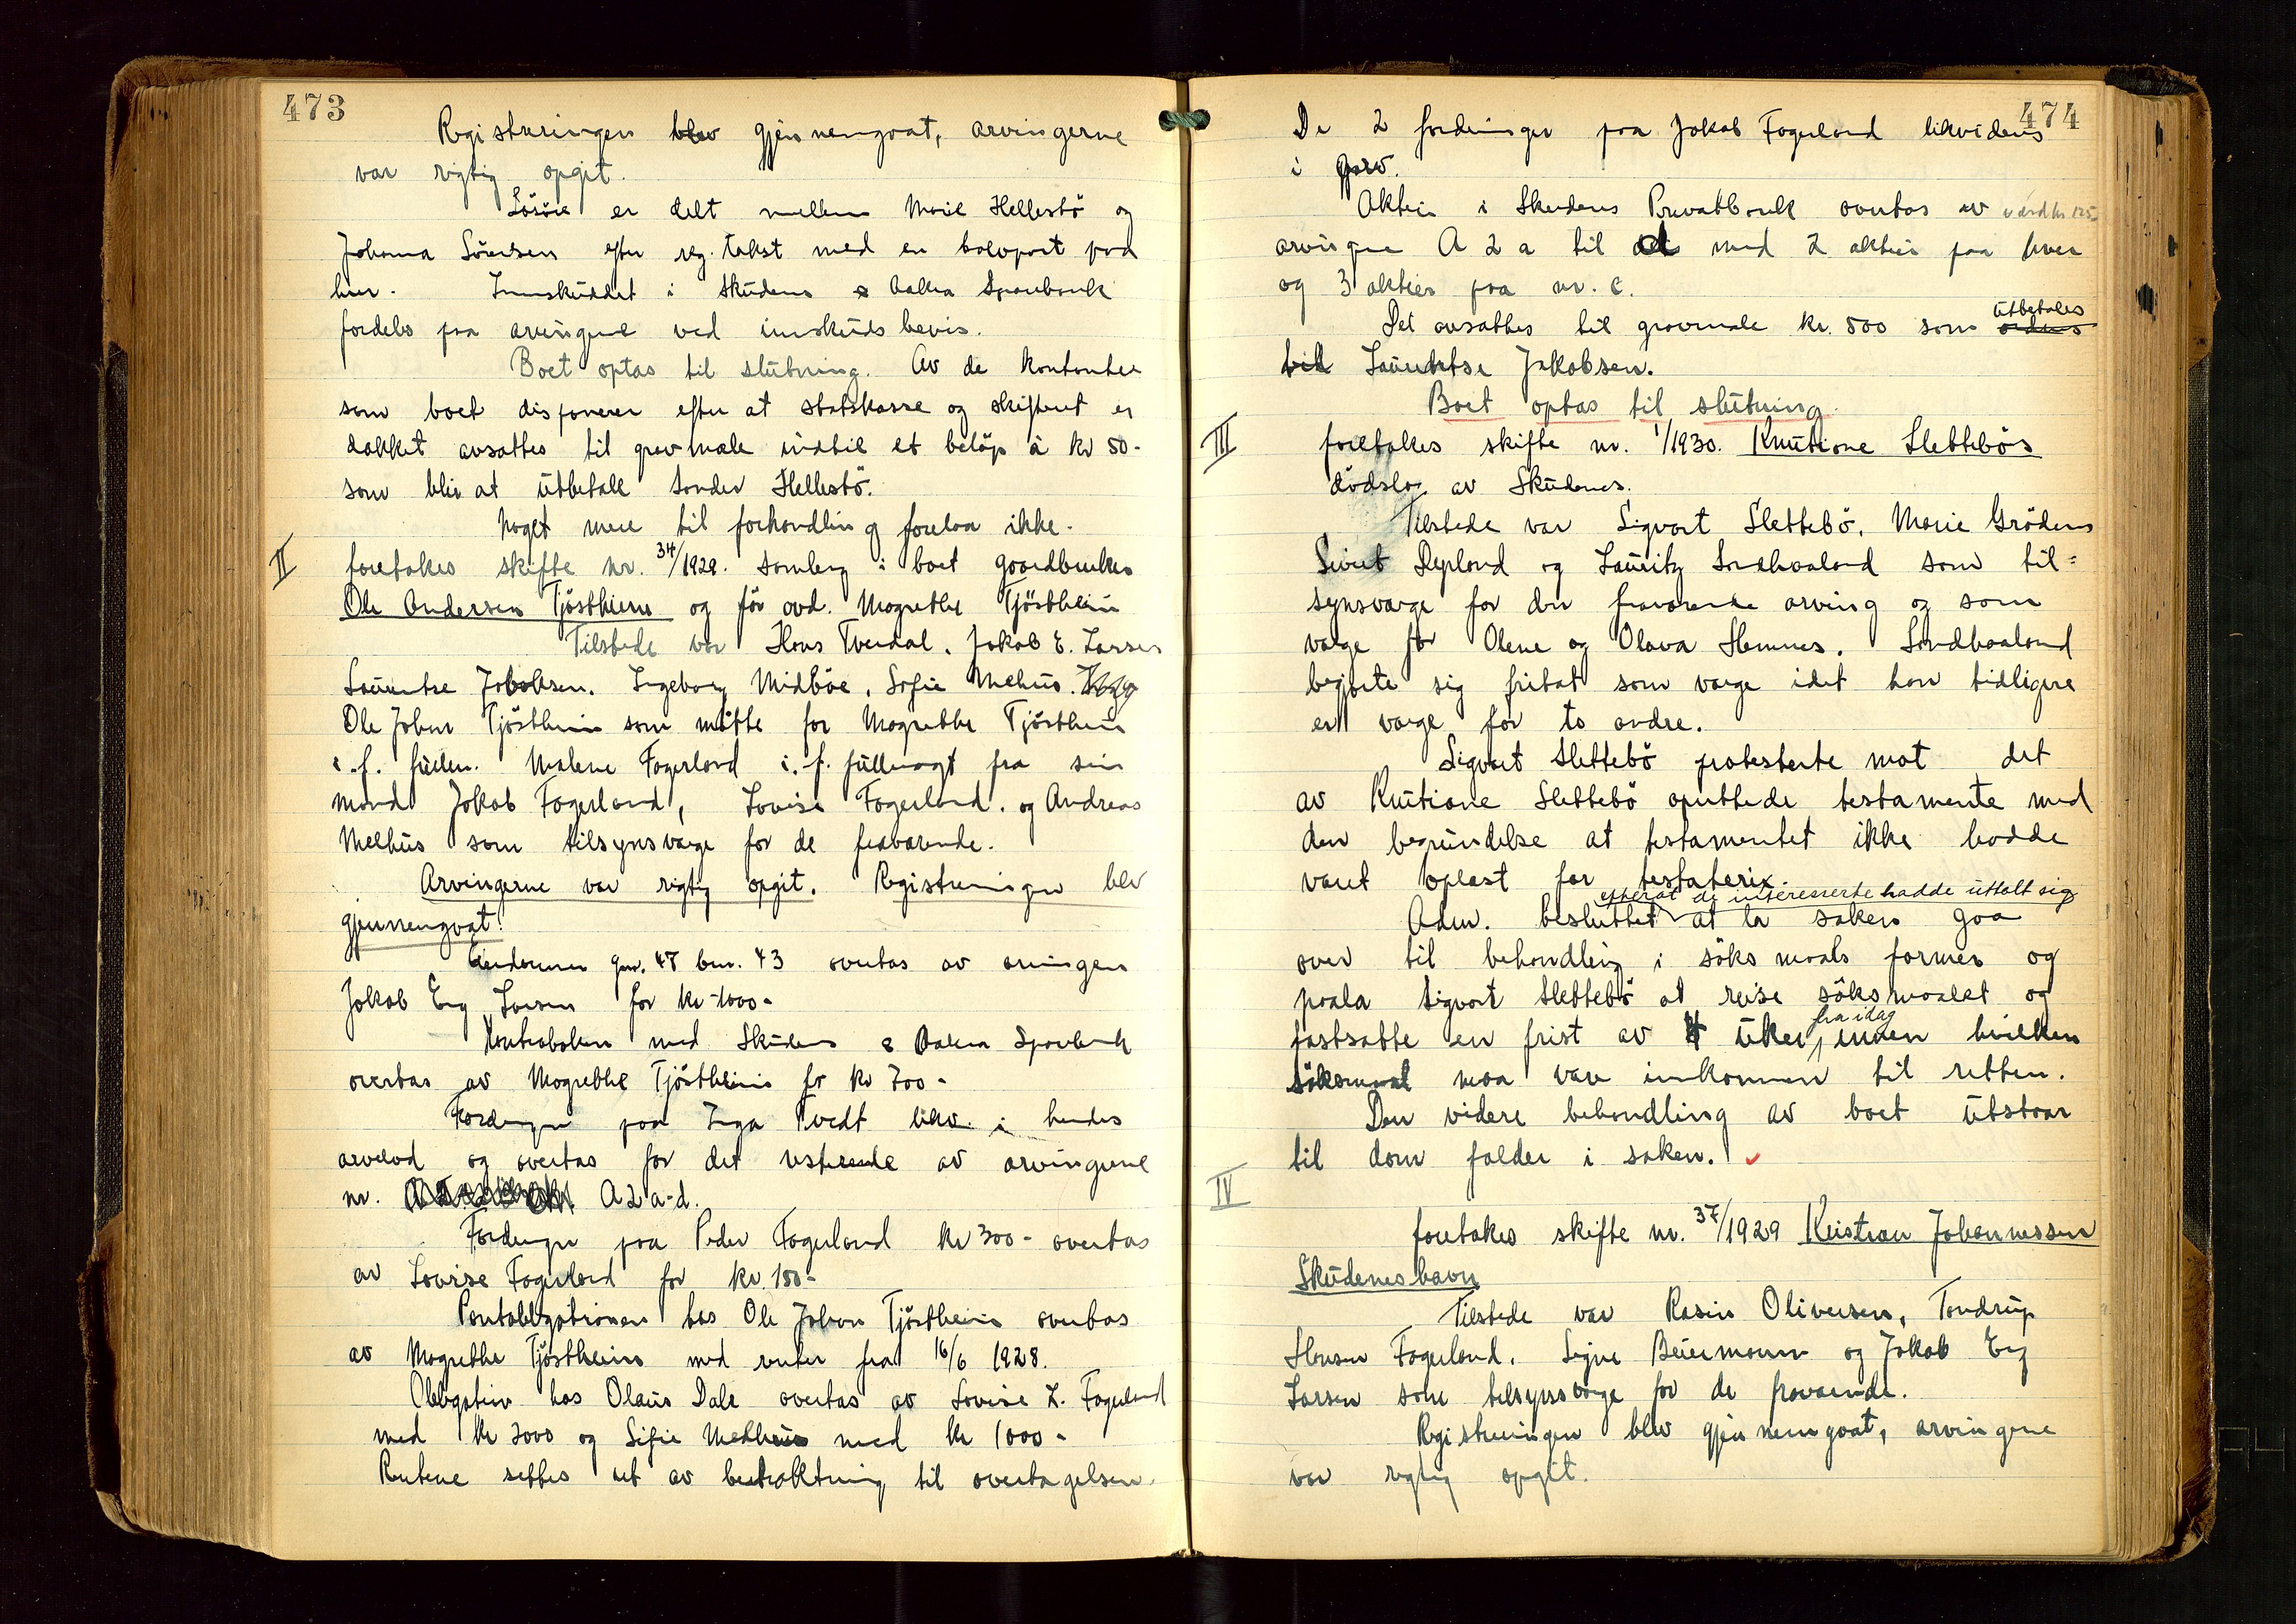 473
Registreringen blev gjennemgaat, arvingerne
var rigtig opgit.
Lösöre er delt mellem Marie Hellestö og
Johanna Sörensen efter reg. takst med en halvpart paa
hver. Innskuddet i Skudenes & Aakra Sparebank
fordeles paa arvingene ved innskudsbevis.
Boet optas til slutning. Av de kontanter
som boet disponerer efter at statskasse og skifteret er
dækket avsattes til gravmæle indtil et belöp à kr 50-
som blir at utbetale Sander Hellestö.
Noget mere til forhandling forelaa ikke.
II foretakes skifte nr. 34/1929. samleg i boet gaardbruker
Ole Andersen Tjöstheim og för avd. Magrethe Tjöstheim
Tilstede var Hans Tveidal, Jakob E. Larsen
Lauentse Jakobsen. Ingeborg Midböe, Sofie Melhus.
Ole Johan Tjöstheim som mötte for Magrethe Tjöstheim
i.f. fullm. Malene Fagerland i.f. fullmagt fra sin
mand Jakob Fagerland, Lovise Fagerland. og Andreas
Melhus som tilsynsværge for de fraværende.
Arvingerne var rigtig opgit. Registreringen blev
gjennemgaat.
Eiendommen gnr. 47 bnr. 43 overtas av arvingen
Jakob Erg Larsen for kr-1000-
Kontraboken med Skudenes & Aakra Sparebank
overtas av Magrethe Tjöstheim for kr 700-
Fordringen paa Inga Tvedt likv. i hendes
arvelod og overtas for det resterende av arvingene
nr. A 2 a-d.
Fordringen paa Peder Fagerland kr 300- overtas
av Lovise Fagerland for kr. 100-
Pantobligationen hos Ole Johan Tjöstheim overtas
av Magrethe Tjöstheim med renter fra 16/6 1928.
Obligation hos Olaus Dale overtas av Lovise L. Fagerland
med kr 2000 og Sofie Melhus med kr 1000-
Rentene settes ut av betraktning til overtagelsen.
474
De 2 fordringer paa Jakob Fagerland likvideres
i arv.
Aktier i Skudenes Privatbank overtas av værd kr 125
arvingene A 2 a til d med 2 aktier paa hver
og 3 aktier paa nr. c.
Det avsattes til gravmæle kr. 500 som utbetales
til Lauentse Jakobsen.
Boet optas til slutning.
III foretakes skifte nr. 1/1930. Knutiane Slettebös
dödsbo av Skudenes.
Tilstede var Sigvart Slettebö, Marie Grödem
Sivert Repland og Lauritz Sandhaaland som til=
synsværge for den fraværende arving og som
værge for Olene og Olava Hemnes. Sandhaaland
begjærte sig fritat som værge idet han tidligere
er værge for to andre.
Sigvart Slettebö protesterte mot det
av Knutiane Slettebö oprettede testamente med
den begrundelse at testamentet ikke hadde
været oplæst for testaterix.
efterat de interesserte hadde uttalt sig
Adm. besluttet at la saken gaa
over til behandling i söksmaals former og
paala Sigvart Slettebö at reise söksmaalet og
fastsatte en frist av 4 uker fra idag, innen hvilken
söksmaal maa være innkommen til retten.
Den videre behandling av boet utstaar
til dom falder i saken.
IV
foretakes skifte nr. 37/1929 Kristian Johannessen
Skudeneshavn
Tilstede var Rasin Oliversen, Tandrup
Hansen Fagerland, Signe Beiermann og Jakob Erg
Larsen som tilsynsværge for de fraværende.
Registreringen blev gjennemgaat, arvingene
var rigtig opgit.